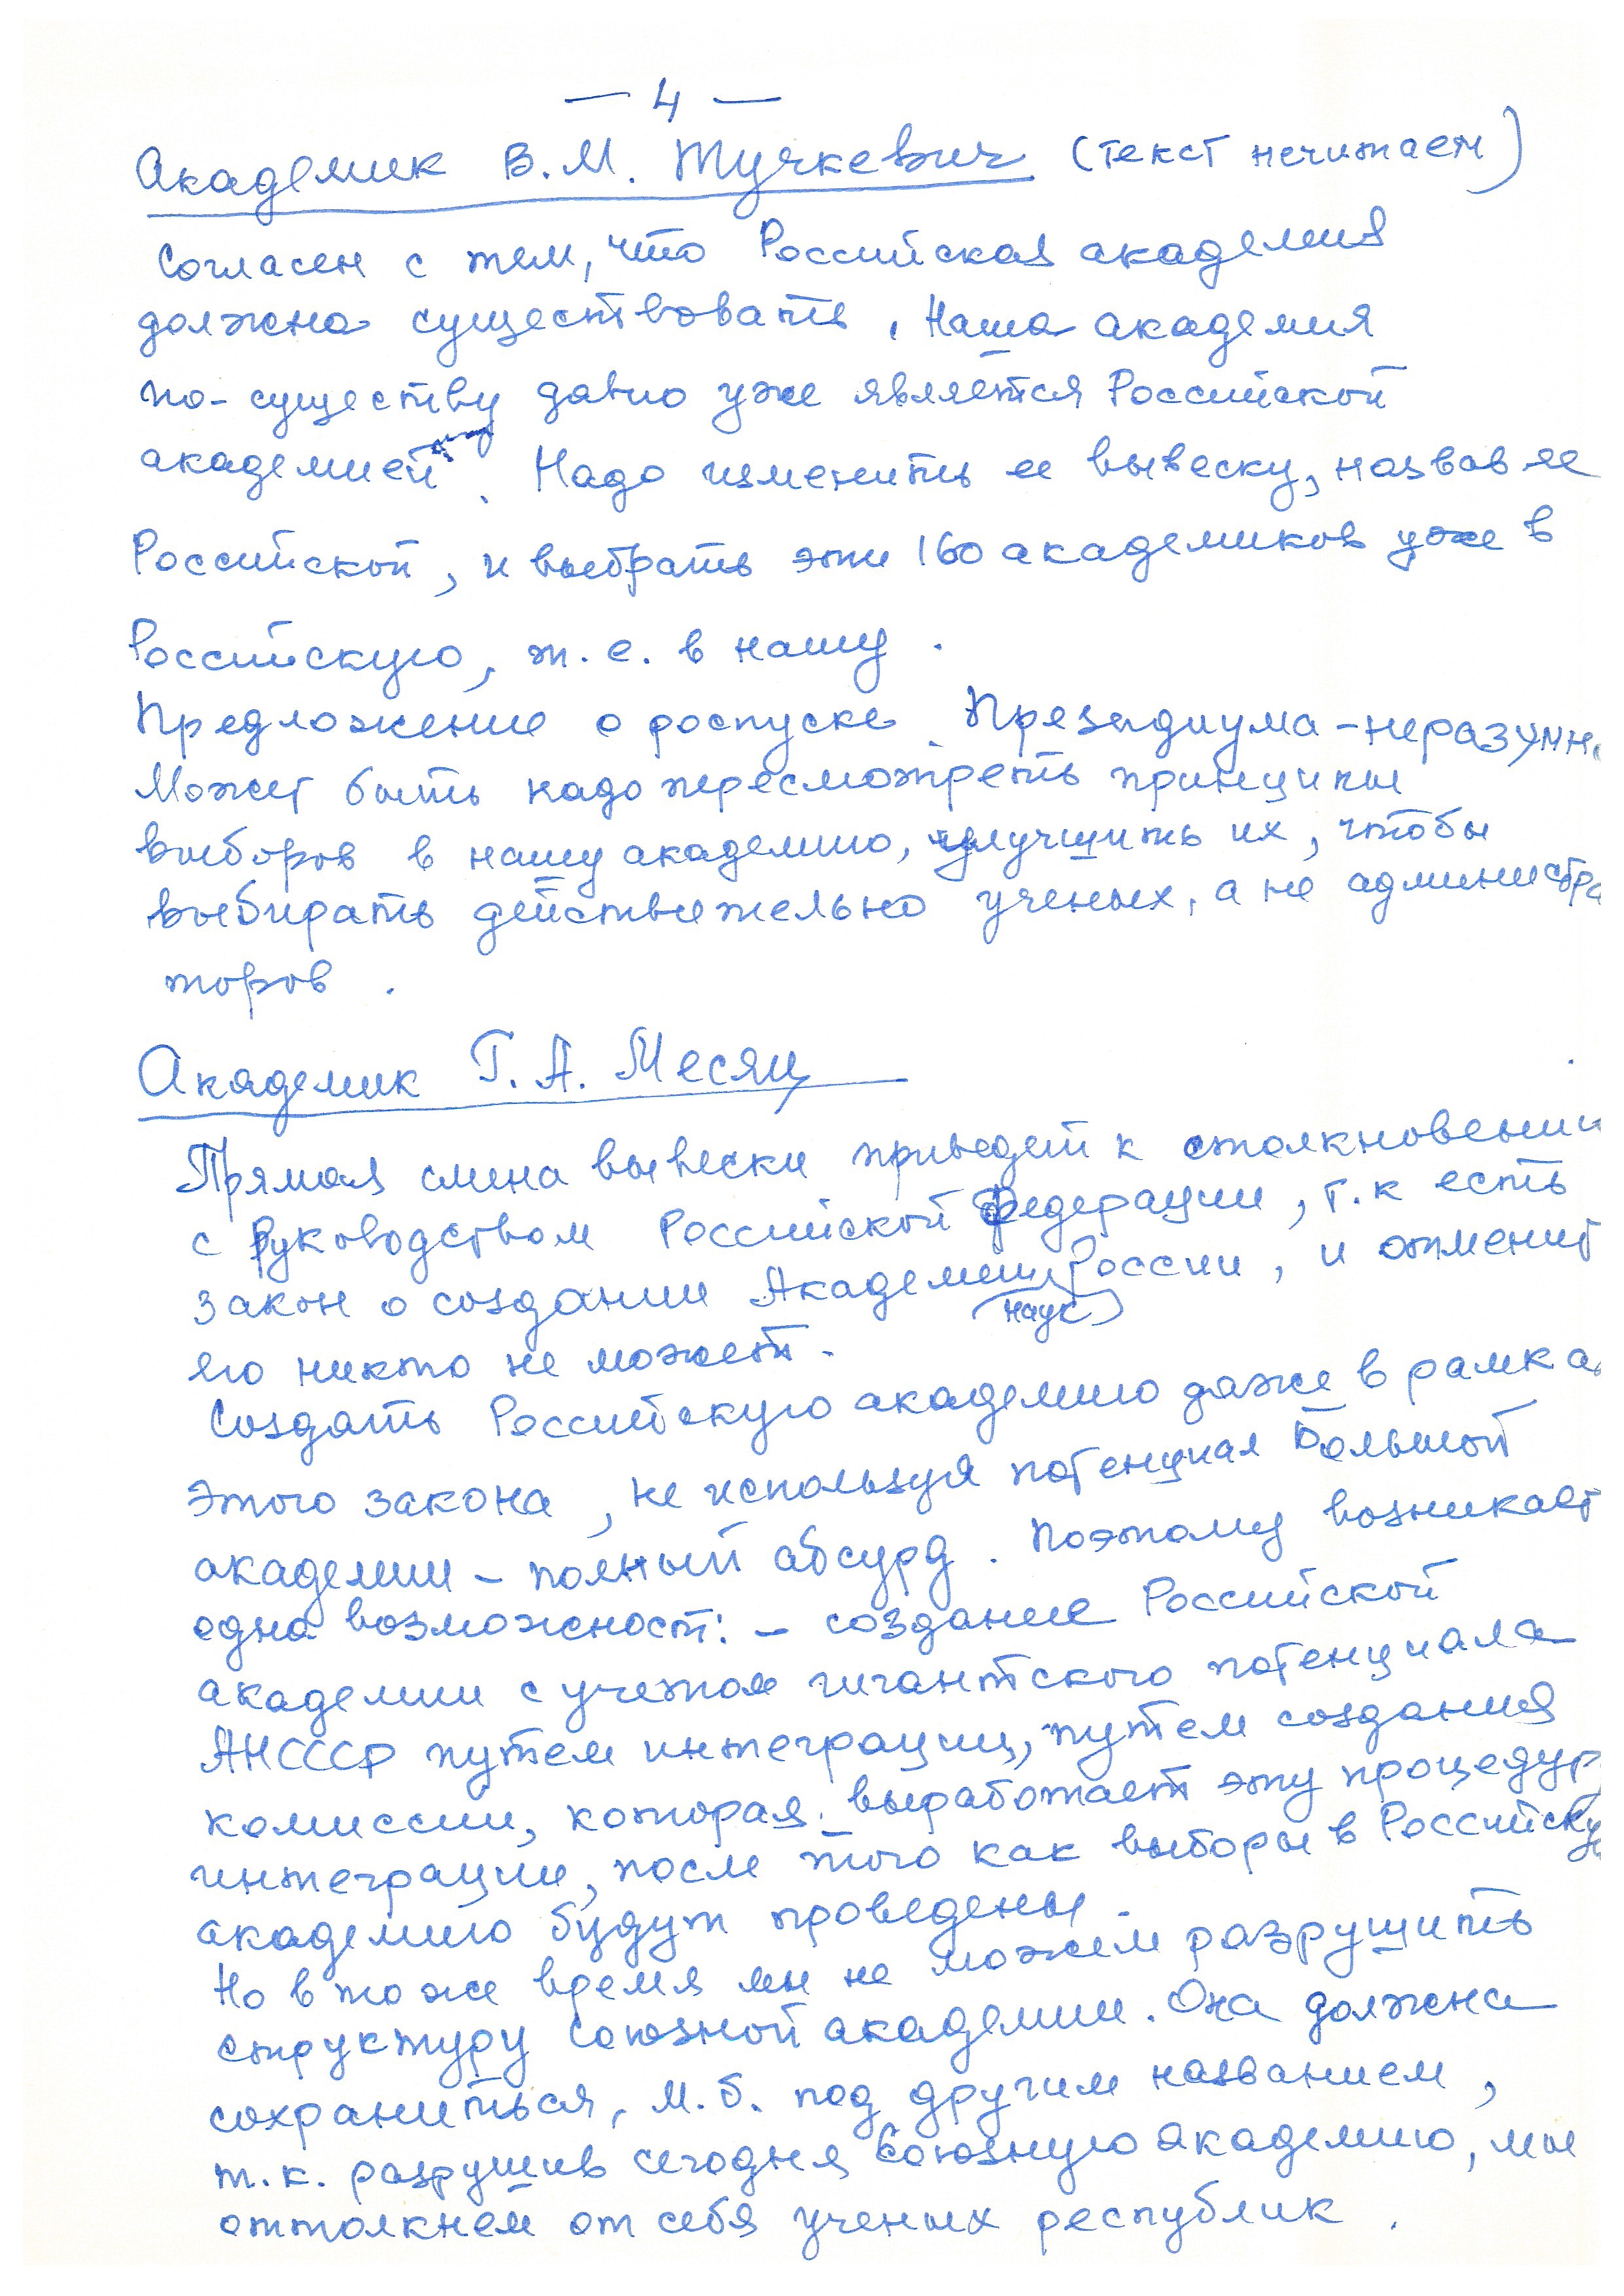 — 4 —
Академик В.М. Тучкевич (текст нечитаем)
Согласен с тем, что Российская академия
должна существовать. Наша академия
по-существу давно уже является Российской
академией. Надо изменить ее вывеску, назвав ее
Российской, и выбрать эти 160 академиков уже в
Российскую, т.е. в нашу.
Предложение о роспуске Президиума - неразумн
Может быть надо пересмотреть принципы
выборов в нашу академию, улучшить их, чтобы
выбирать действительно ученых, а не администра
торов.
Академик Г.А. Месяц
Прямая смена вывески приведет к столкновени
с Руководством Российской Федерации, т.к есть
закон о создании Академии России, и отменит
наук
его никто не может.
Создать Российскую академию даже в рамка
этого закона, не используя потенциал Большой
академии - полный абсурд. Поэтому возникает
одна возможност: - создание Российской
академии с учетом гигантского потенциала
АНСССР путем интеграции, путем создания
комиссии, которая выработает эту процедур
интеграции, после того как выборы в Российску
академию будут проведены.
Но в то же время мы не можем разрушить
структуру Союзной академии. Она должна
сохраниться, м.б. под другим названием,
т.к. разрушив сегодня Союзную академию, мы
оттолкнем от себя ученых республик.